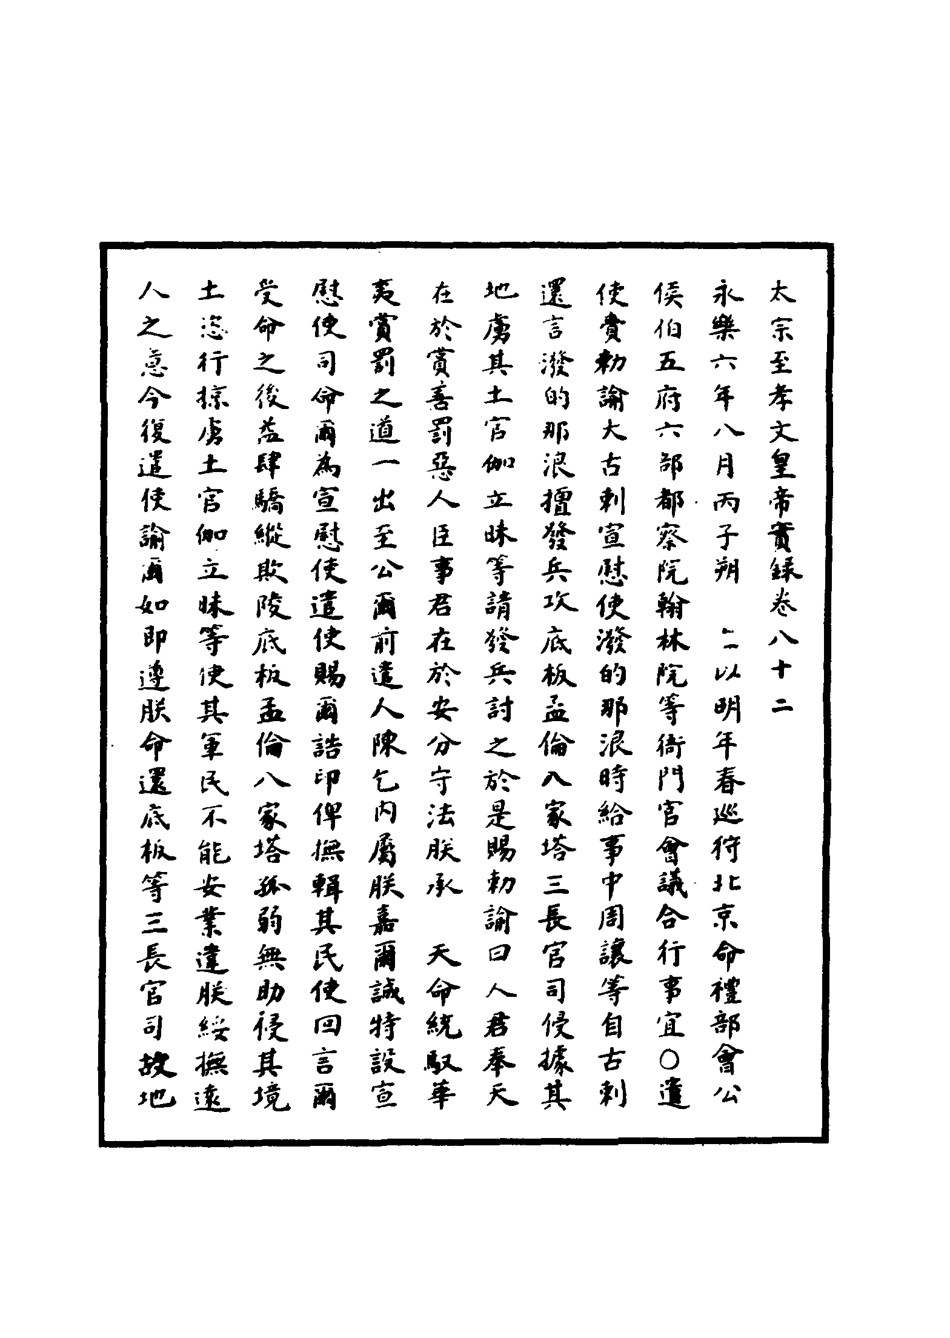 太宗至孝文皇帝實錄卷八十二
永樂六年八月丙子朔　　上以明年春巡狩北京命禮部會公
侯伯五府六部都察院翰林院等衙門官會議合行事宜○遣
使賫勅諭大古剌宣慰使潑的那浪時給事中周讓等自古剌
還言潑的那浪擅發兵攻底板孟倫八家塔三長官司侵據其
地虜其土官伽立昧等請發兵討之於是賜勅諭曰人君奉天
在於賞善罰惡人臣事君在於安分守法朕承　天命統馭華
夷賞罰之道一出至公爾前遣人陳乞內屬朕嘉爾誠特設宣
慰使司命爾為宣慰使遣使賜爾誥印俾撫輯其民使回言爾
受命之後益肆驕縱欺陵底板孟倫八家塔孤弱無助侵其境
土恣行掠虜土官伽立昧等使其軍民不能安業違朕綏撫遠
人之意今復遣使諭爾如即遵朕命還底板等三長官司故地